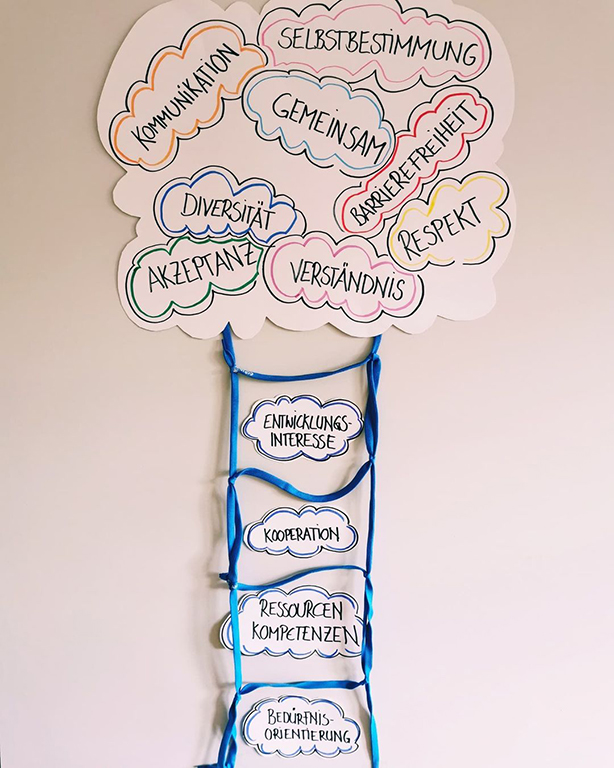 SELBSTBESTIMMUNG
KOMMUNIKATION
GEMEINSAM
BARRIEREFREIHEIT
DIVERSITÄT
RESPEKT
AKZEPTANZ
VERSTÄNDNIS
ENTWICKLUNGS-
INTERESSE
KOOPERATION
RESSOURCEN
KOMPETENZEN
BEDÜRFNIS-
ORIENTIERUNG